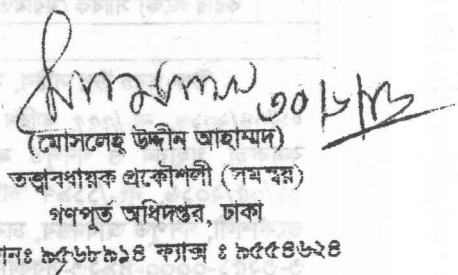 ৩০/৮/১১
(মোসলেহ উদ্দীন আহাম্মদ)
তত্ত্বাবধায়ক প্রকৌশলী (সমন্বয়)
গণপূর্ত অধিদপ্তর, ঢাকা
নঃ ৯৫৬৮৯১৪ ফ্যাক্স ঃ ৯৫৫৪৬২৪